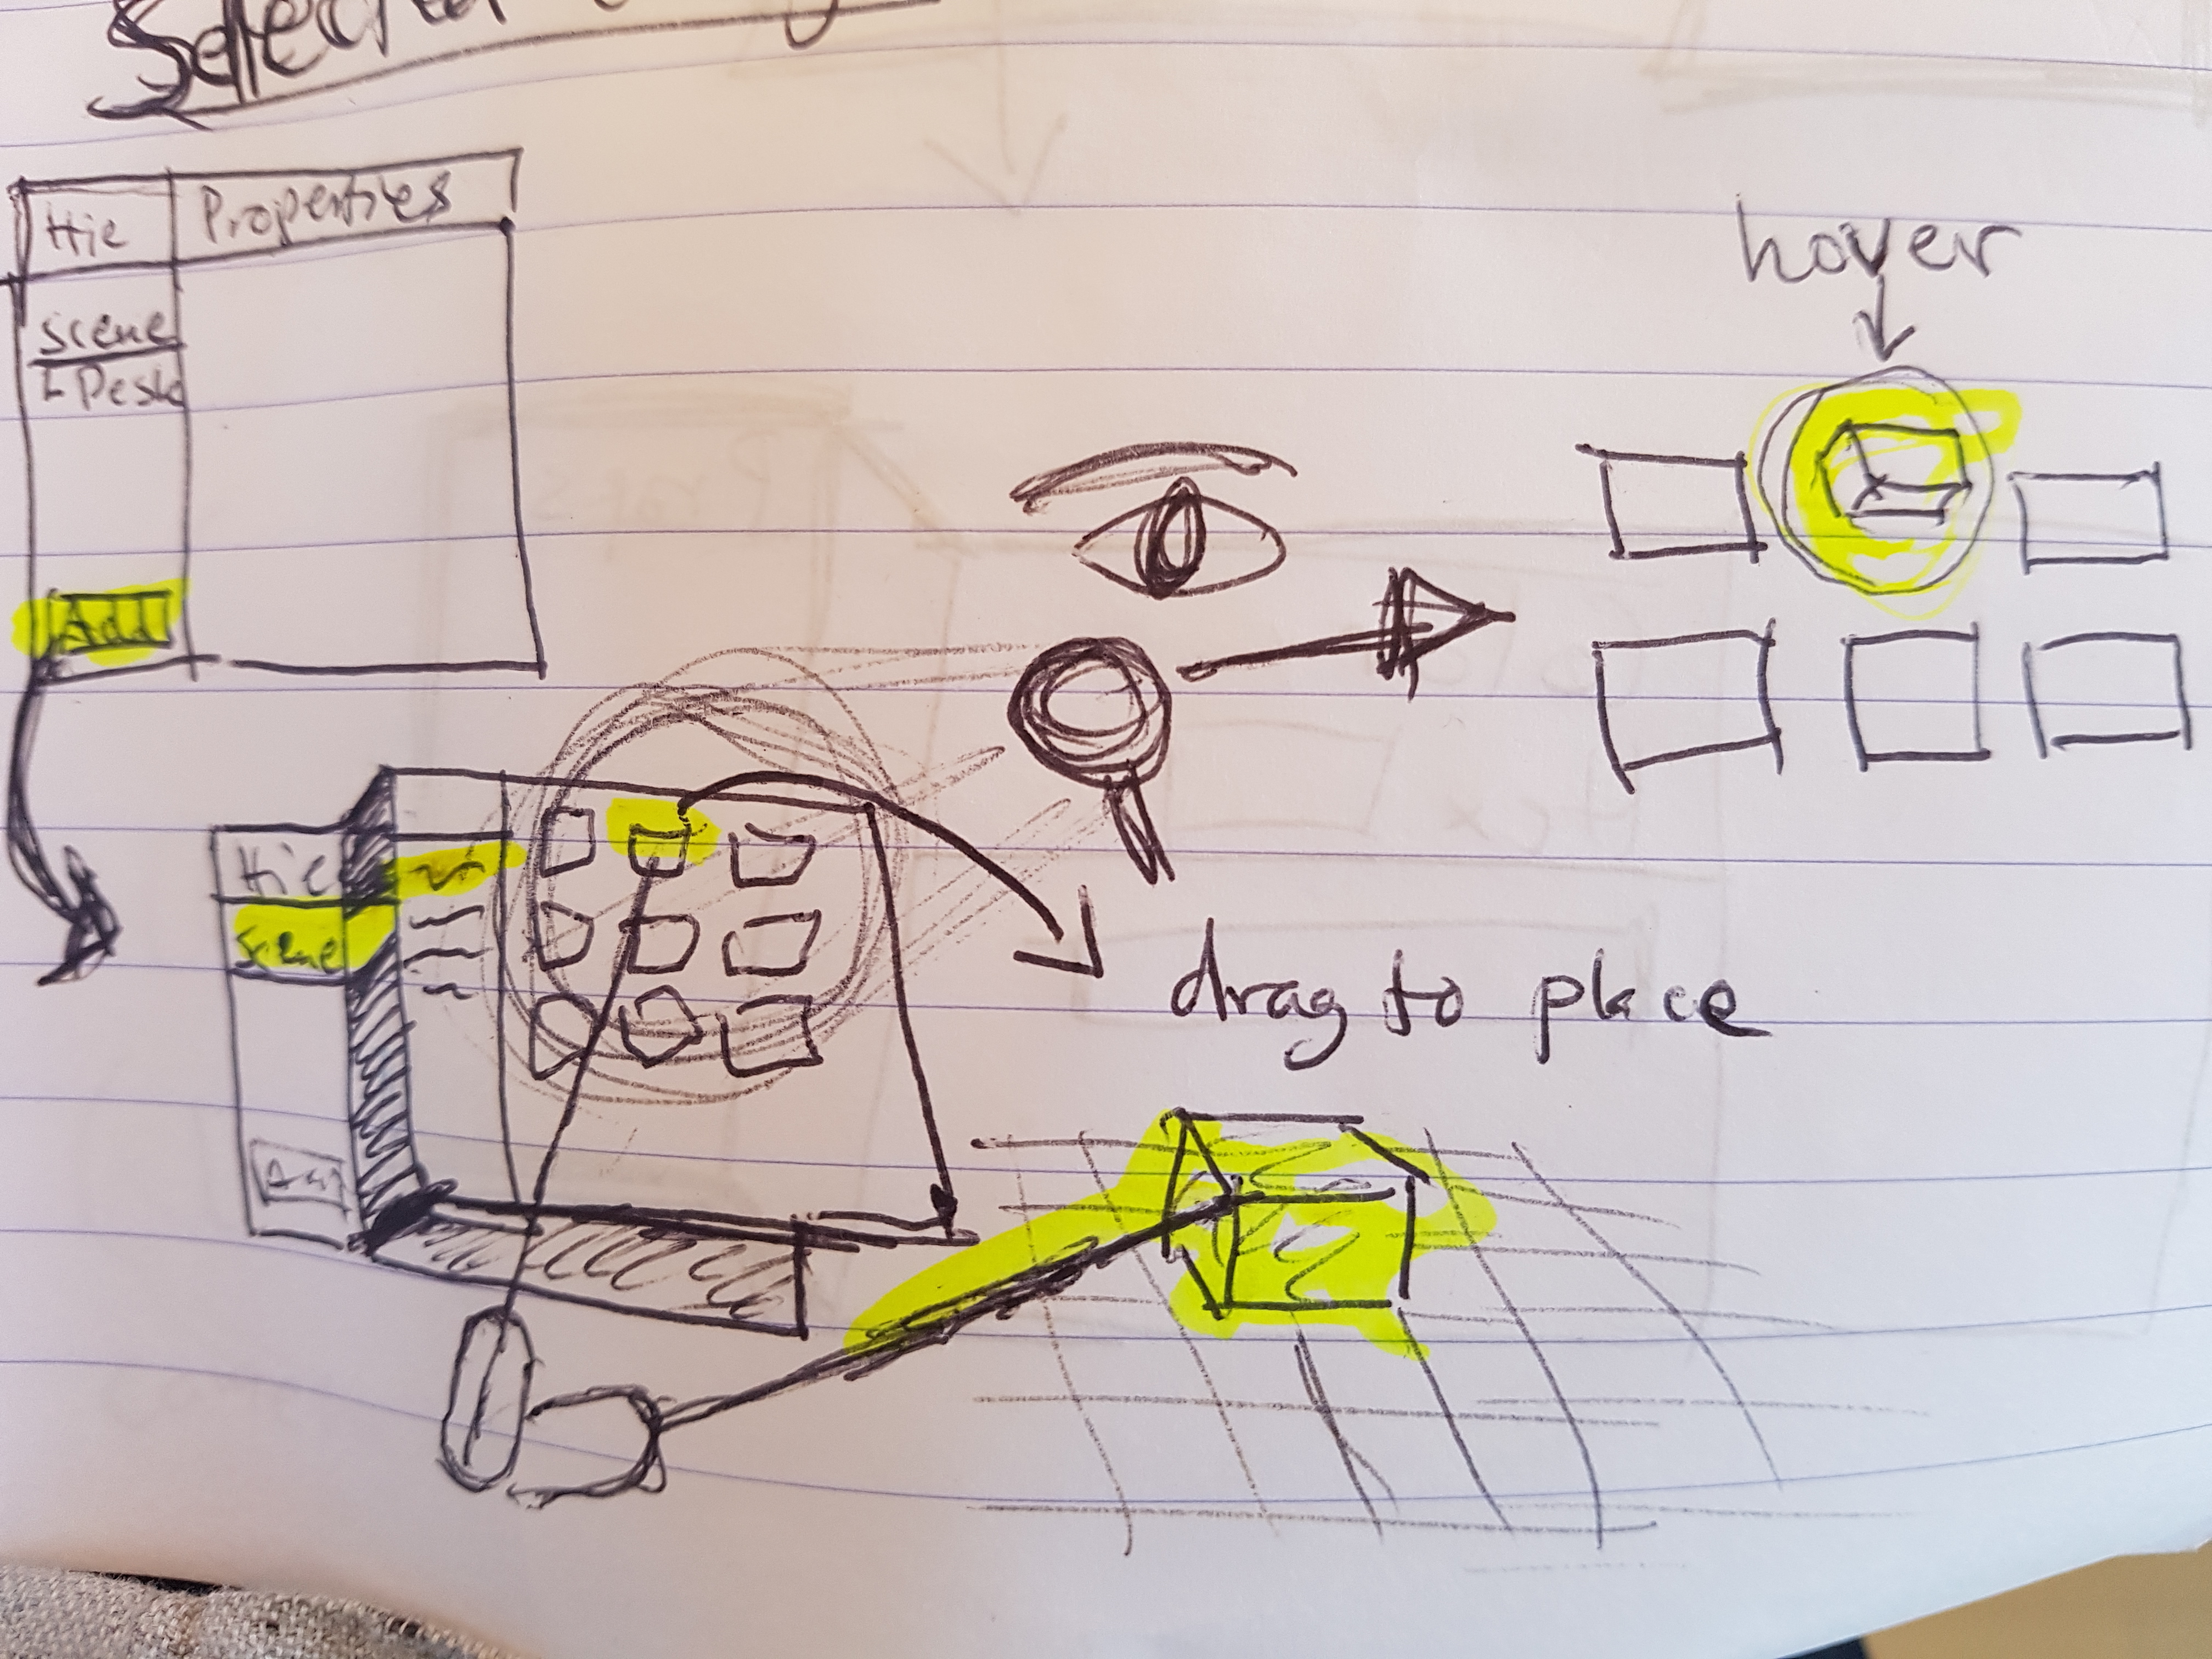 Hie Properties
scene
Desk
Add
hover
Hie
scene
drag to place